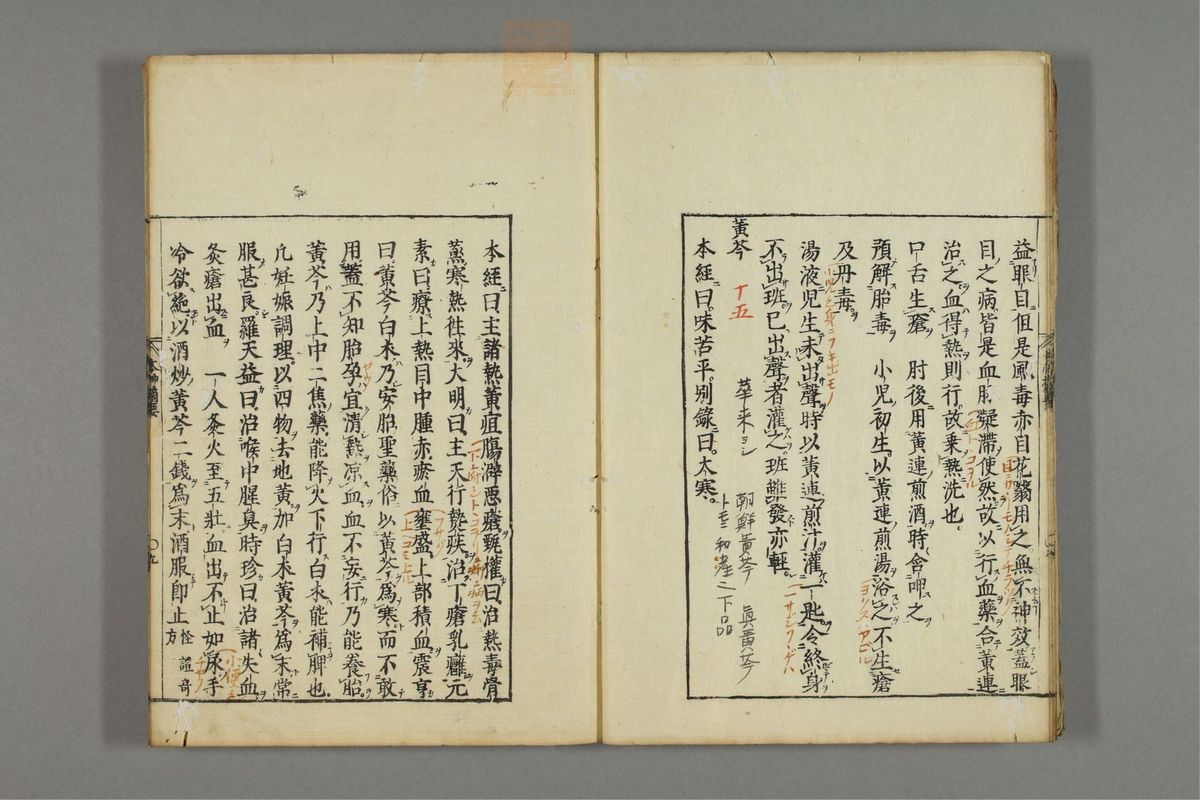 益眼目但是風毒亦目花翳用之無不神效蓋眼
目之病皆是血脉凝滯使然故以行血藥合黃連
治之血得熱則行故乗熱洗也
口舌生瘡 肘後用黃連煎酒時含呷之
預解胎毒 小児初生以黃連煎湯浴之不生瘡
及丹毒
湯液児生未出聲時以黃連煎汁灌一匙令終身
不出班已出聲者灌之班雖發亦輕
黃芩 十五 華来ヨシ 朝鮮黃芩 眞黃芩
本經曰味苦平別錄曰大寒
本經曰主諸熱黃疸膓澼惡瘡甄權曰治熱毒骨
蒸寒熱徃來大明曰主天行熱疾治丁瘡乳癰元
素曰療上熱目中腫赤瘀血壅盛上部積血震亨
曰黃芩白朮乃安胎聖藥俗以黃芩爲寒而不敢
用蓋不知胎孕宜清熱凉血血不妄行乃能養胎
黃芩乃上中二焦藥能降火下行白朮能補脾也
凢妊娠調理以四物去地黃加白朮黃芩爲末常
服甚良羅天益曰治喉中腥臭時珍曰治諸失血
灸瘡出血 一人灸火至五壯血出不止如尿手
冷欲絶以酒炒黃芩二錢爲末酒服即止 怪證奇方